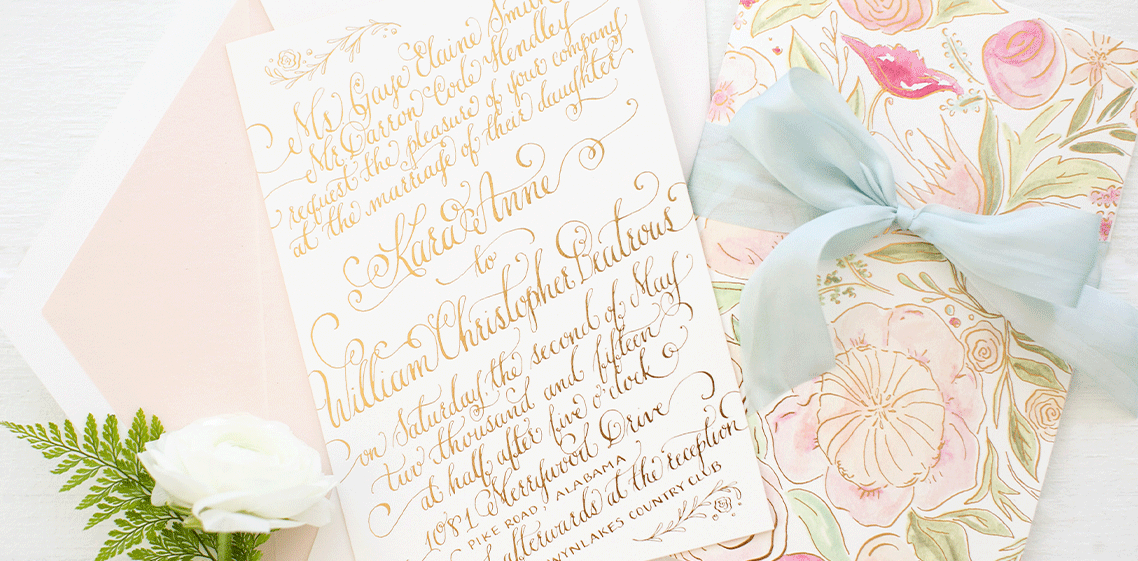 Ms Gaye Elaine Smith
Mr Darron Code Hendley
request the pleasure of your company
at the marriage of their daughter
Kara Anne
to
William Christopher Beatrous
on Saturday, the second of May
two thousand and fifteen
at half after five o'clock
1081 Merrywood Drive
PIKE ROAD, ALABAMA
afterwards at the reception
WYNLAKES COUNTRY CLUB